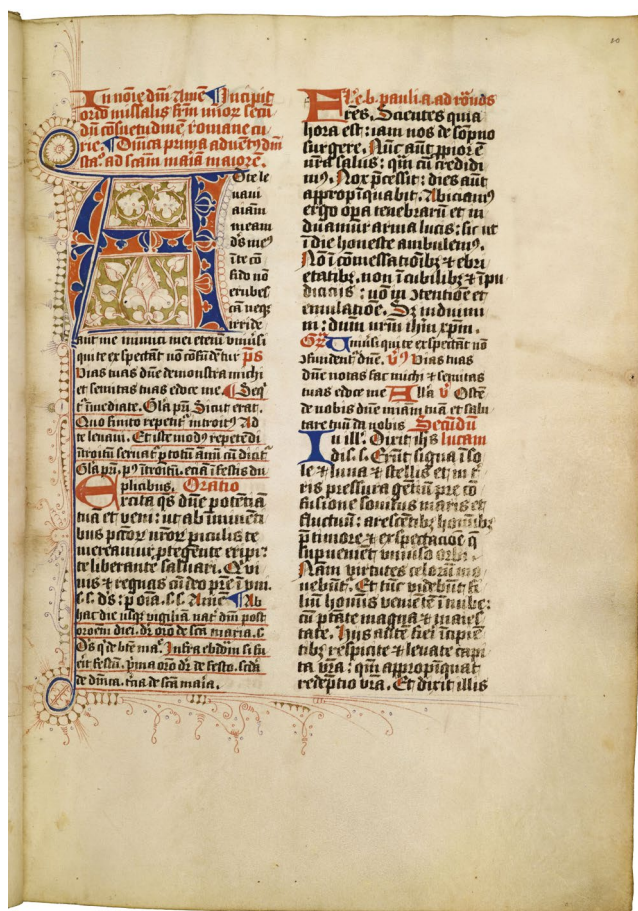 In noīe dn̄i Amē Incipit
ordo missalis frm̄ minor̄ secū
dū cōsuetudinē romane cu
rie. Dn̄ica prima aduētꝰ dn̄i
Sta. ad scām maiā maiorē.
A D te le
uaui
aīam
meam
d̄s meꝰ
ī te cō
fido nō
erubes
cā neqꝫ
irride
ant me inimici mei eteni vniūsi
qui te expectāt nō cōfūdētur ps̄
Vias tuas dn̄e demonstra michi
et semitas tuas edoce me. Seq̄
t̄ īmediate. Gl̄a pr̄i Sicut erat.
Quo finito repetit̄ introitꝰ Ad
te leuaui. Et iste modꝰ repetēdi
ītroitū seruat̄ p totū ānū cū dicit̄
Gl̄a pr̄i. pꝰ ītroitū. etiā ī festis du
plicibus. Oratio
Excita q̄s dn̄e potētiā
tuā et veni: ut ab īminēti
bus pctōꝝ nr̄oꝝ piculis te
mereamur, ptegēte eripi:
te liberante saluari. Qui
uiuis ⁊ regnas cū deo pr̄e ī vni.
s.s. d̄s: p oīa. s.s. Amē Ab
hac die usqꝫ vigiliā nat̄ dn̄i post
or̄oem diei. dr̄ or̄o de scā maria. s.
D̄s q̄ de btē ma. Infra ebdōm si fu
erit festū. pma or̄o dr̄ de festo. scd̄a
de dn̄ica. t̄cia de scā maīa.
Lc̄. ep̄. b. pauli. a. ad rōnos
Fr̄es. Scientes quia
hora est: iam nos de sōpno
surgere. Nūc aūt ppior ē
nr̄a salus: qm̄ cū credidi
mꝰ. Nox p̄cessit: dies aūt
appropīquabit. Abiciamꝰ
ergo opa tenebrarū et in
duamur arma lucis: sic ut
ī die honeste ambulemꝰ.
Nō ī comessatiōibꝫ ⁊ ebri
etatibꝫ. non ī cubilibꝫ ⁊ īpu
diciciis: nō in ↄtentiōe et
emulatiōe. Sꝫ induimi
ni: dnm̄ nr̄m ih̄m xp̄m.
Gr̄. Vniūsi qui te expectāt nō
ↄfundent̄ dn̄e. v̄ Vias tuas
dn̄e notas fac michi ⁊ semitas
tuas edoce me All̄a v̄ Ostē
de nobis dn̄e mīam tuā et salu
tare tuū da nobis Secūdū
In ill̄. Dixit ih̄s lucam
dis. s. Erūt signa ī so
le ⁊ luna ⁊ stellis et in t̄
ris pressura gētiū pre cō
fusione sonitus maris et
fluctuū: arescētibꝫ hoīnibꝫ
p timore ⁊ expectacōe q̄
supuenient vniūso orbi.
Nam virtutes celorū mo
uebūt̄. Et tūc videbūt fi
liū hoīnis veniētē ī nube:
cū ptāte magna ⁊ maies
tate. Hijs aūtē fieri īcipiē
tibꝫ respicite ⁊ leuate capi
ta vr̄a: qm̄ appropīquat
redēptio vr̄a. Et dixit illis